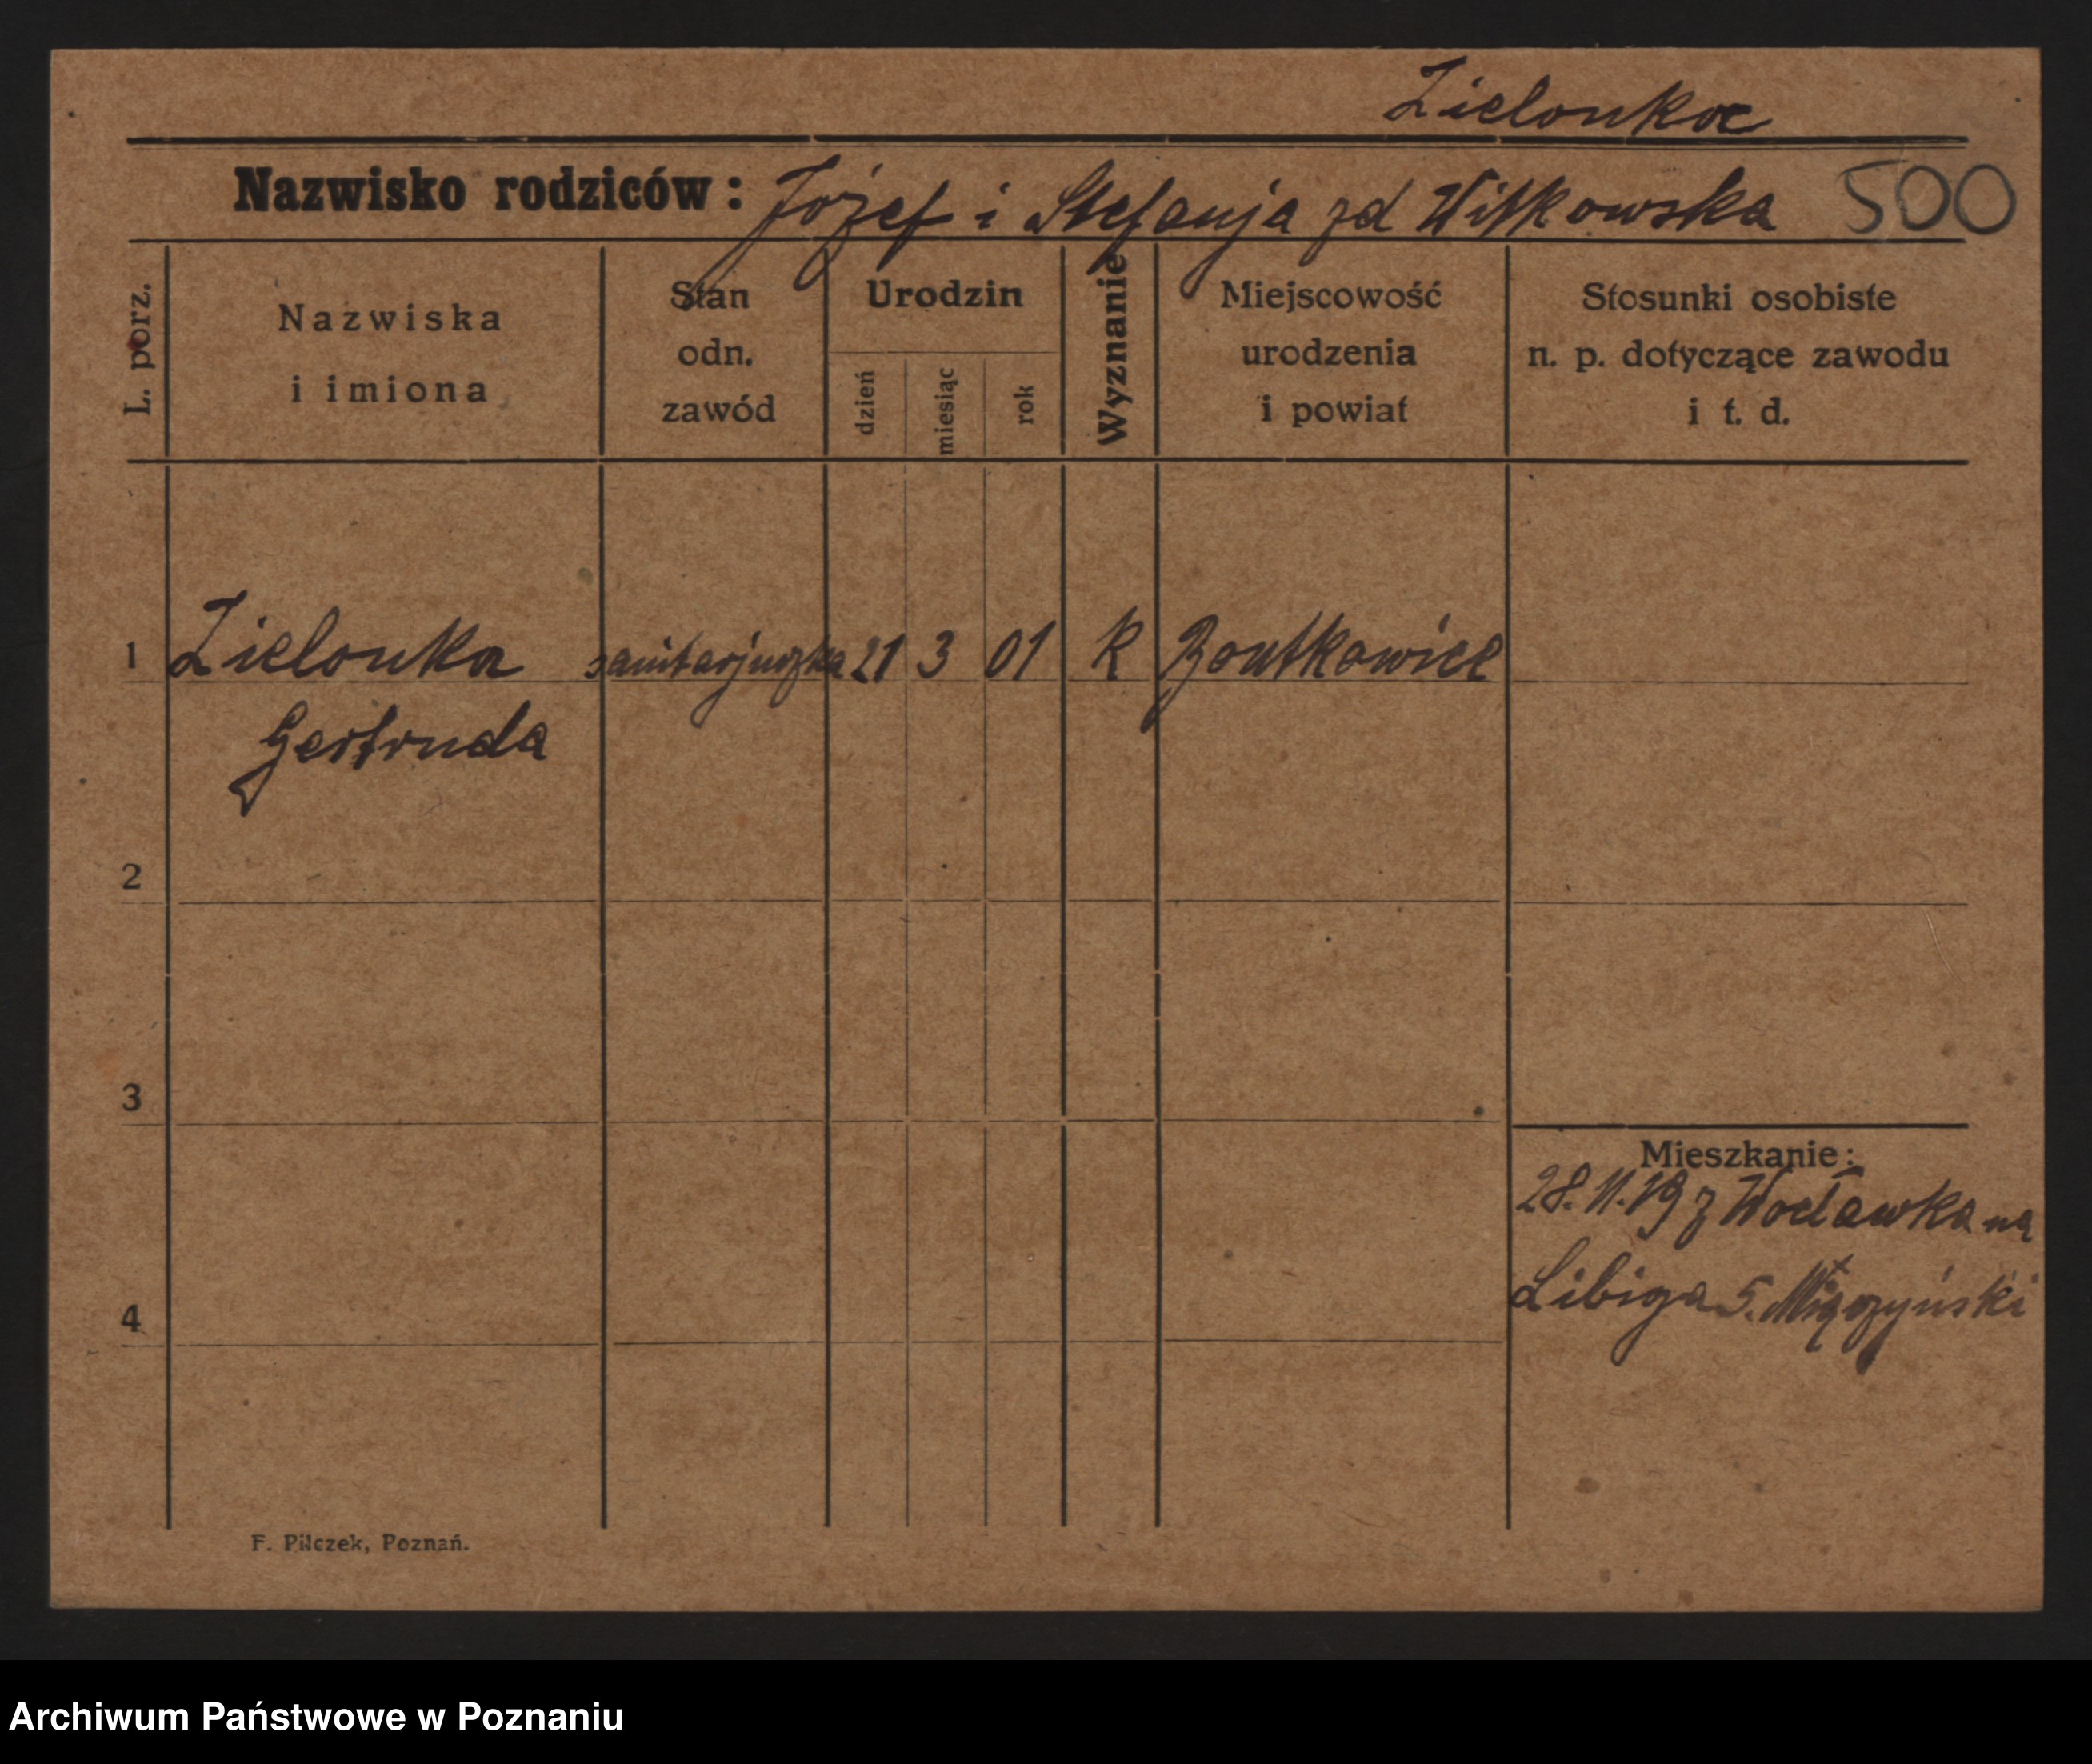 Zielonka
Nazwisko rodziców: Józef i Stefanja zd Witkowska 500
L. porz.
Nazwiska
i imiona
Stan
odn.
zawód
Urodzin
dzień
miesiąc
rok
Wyznanie
Miejscowość
urodzenia
i powiat
Stosunki osobiste
n. p. dotyczące zawodu
i t. d.
1 Zielonka sanitarjuszka 21 3 01 K
Gertruda
2
3
Mieszkanie:
28.11.19 z Wocławka na
4
Libiga 5. Miączyński
F. Pilczek, Poznań.
Archiwum Państwowe w Poznaniu